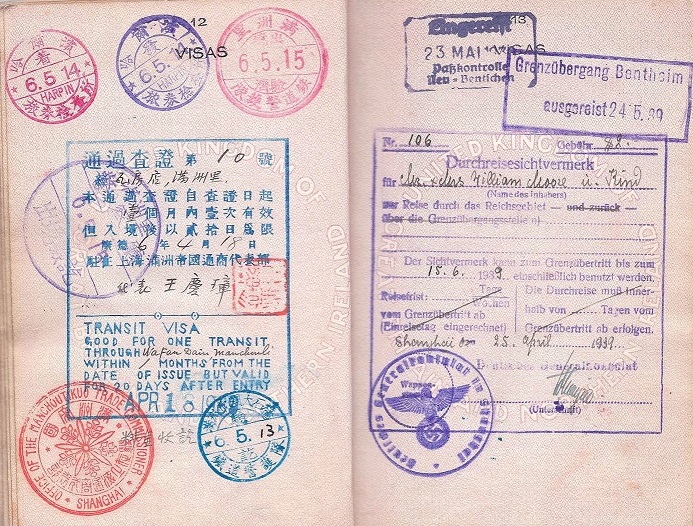 12
VISAS
哈爾濱
6.5.14
HARPIN
6.5.
HARPIN
滿洲里
6.5.15
通過查證 第 10 號
瓦房店,滿洲里
本通過查證自查證日起
壹個月內壹次有效
但入境後以貳拾日爲限
康德 6 年 4 月 18 日
駐在上海滿洲帝國通商代表部
代表 王慶璋
TRANSIT VISA
GOOD FOR ONE TRANSIT
THROUGH Wa Fan Dain Manchouli
WITHIN 1 MONTHS FROM THE
DATE OF ISSUE BUT VALID
FOR 20 DAYS AFTER ENTRY
APR 18
OFFICE OF THE MANCHOUTIKUO TRADE COMMISSIONER
SHANGHAI
6.5.13
13
VISAS
Eingereist
23 MAI
Paßkontrolle
Neu-Bentschen
Grenzübergang Bentheim
ausgereist 24.5.39
Nr. 106 Gebühr $2.
Durchreisesichtvermerk
für William Moore u. Kind
(Name des Inhabers)
zur Reise durch das Reichsgebiet — und zurück —
über die Grenzübergangsstelle(n)
Der Sichtvermerk kann zum Grenzübertritt bis zum
15. 6. 1939. einschließlich benutzt werden.
Reisefrist: Tage Die Ausreise muß inner-
Wochen
vom Grenzübertritt ab halb von Tagen vom
(Einreisetag eingerechnet) Grenzübertritt ab erfolgen.
Shanghai den 25. April 1939.
Deutsches Generalkonsulat
(Unterschrift)
Deutsches Generalkonsulat in Shanghai
UNITED KINGDOM OF
NORTHERN IRELAND